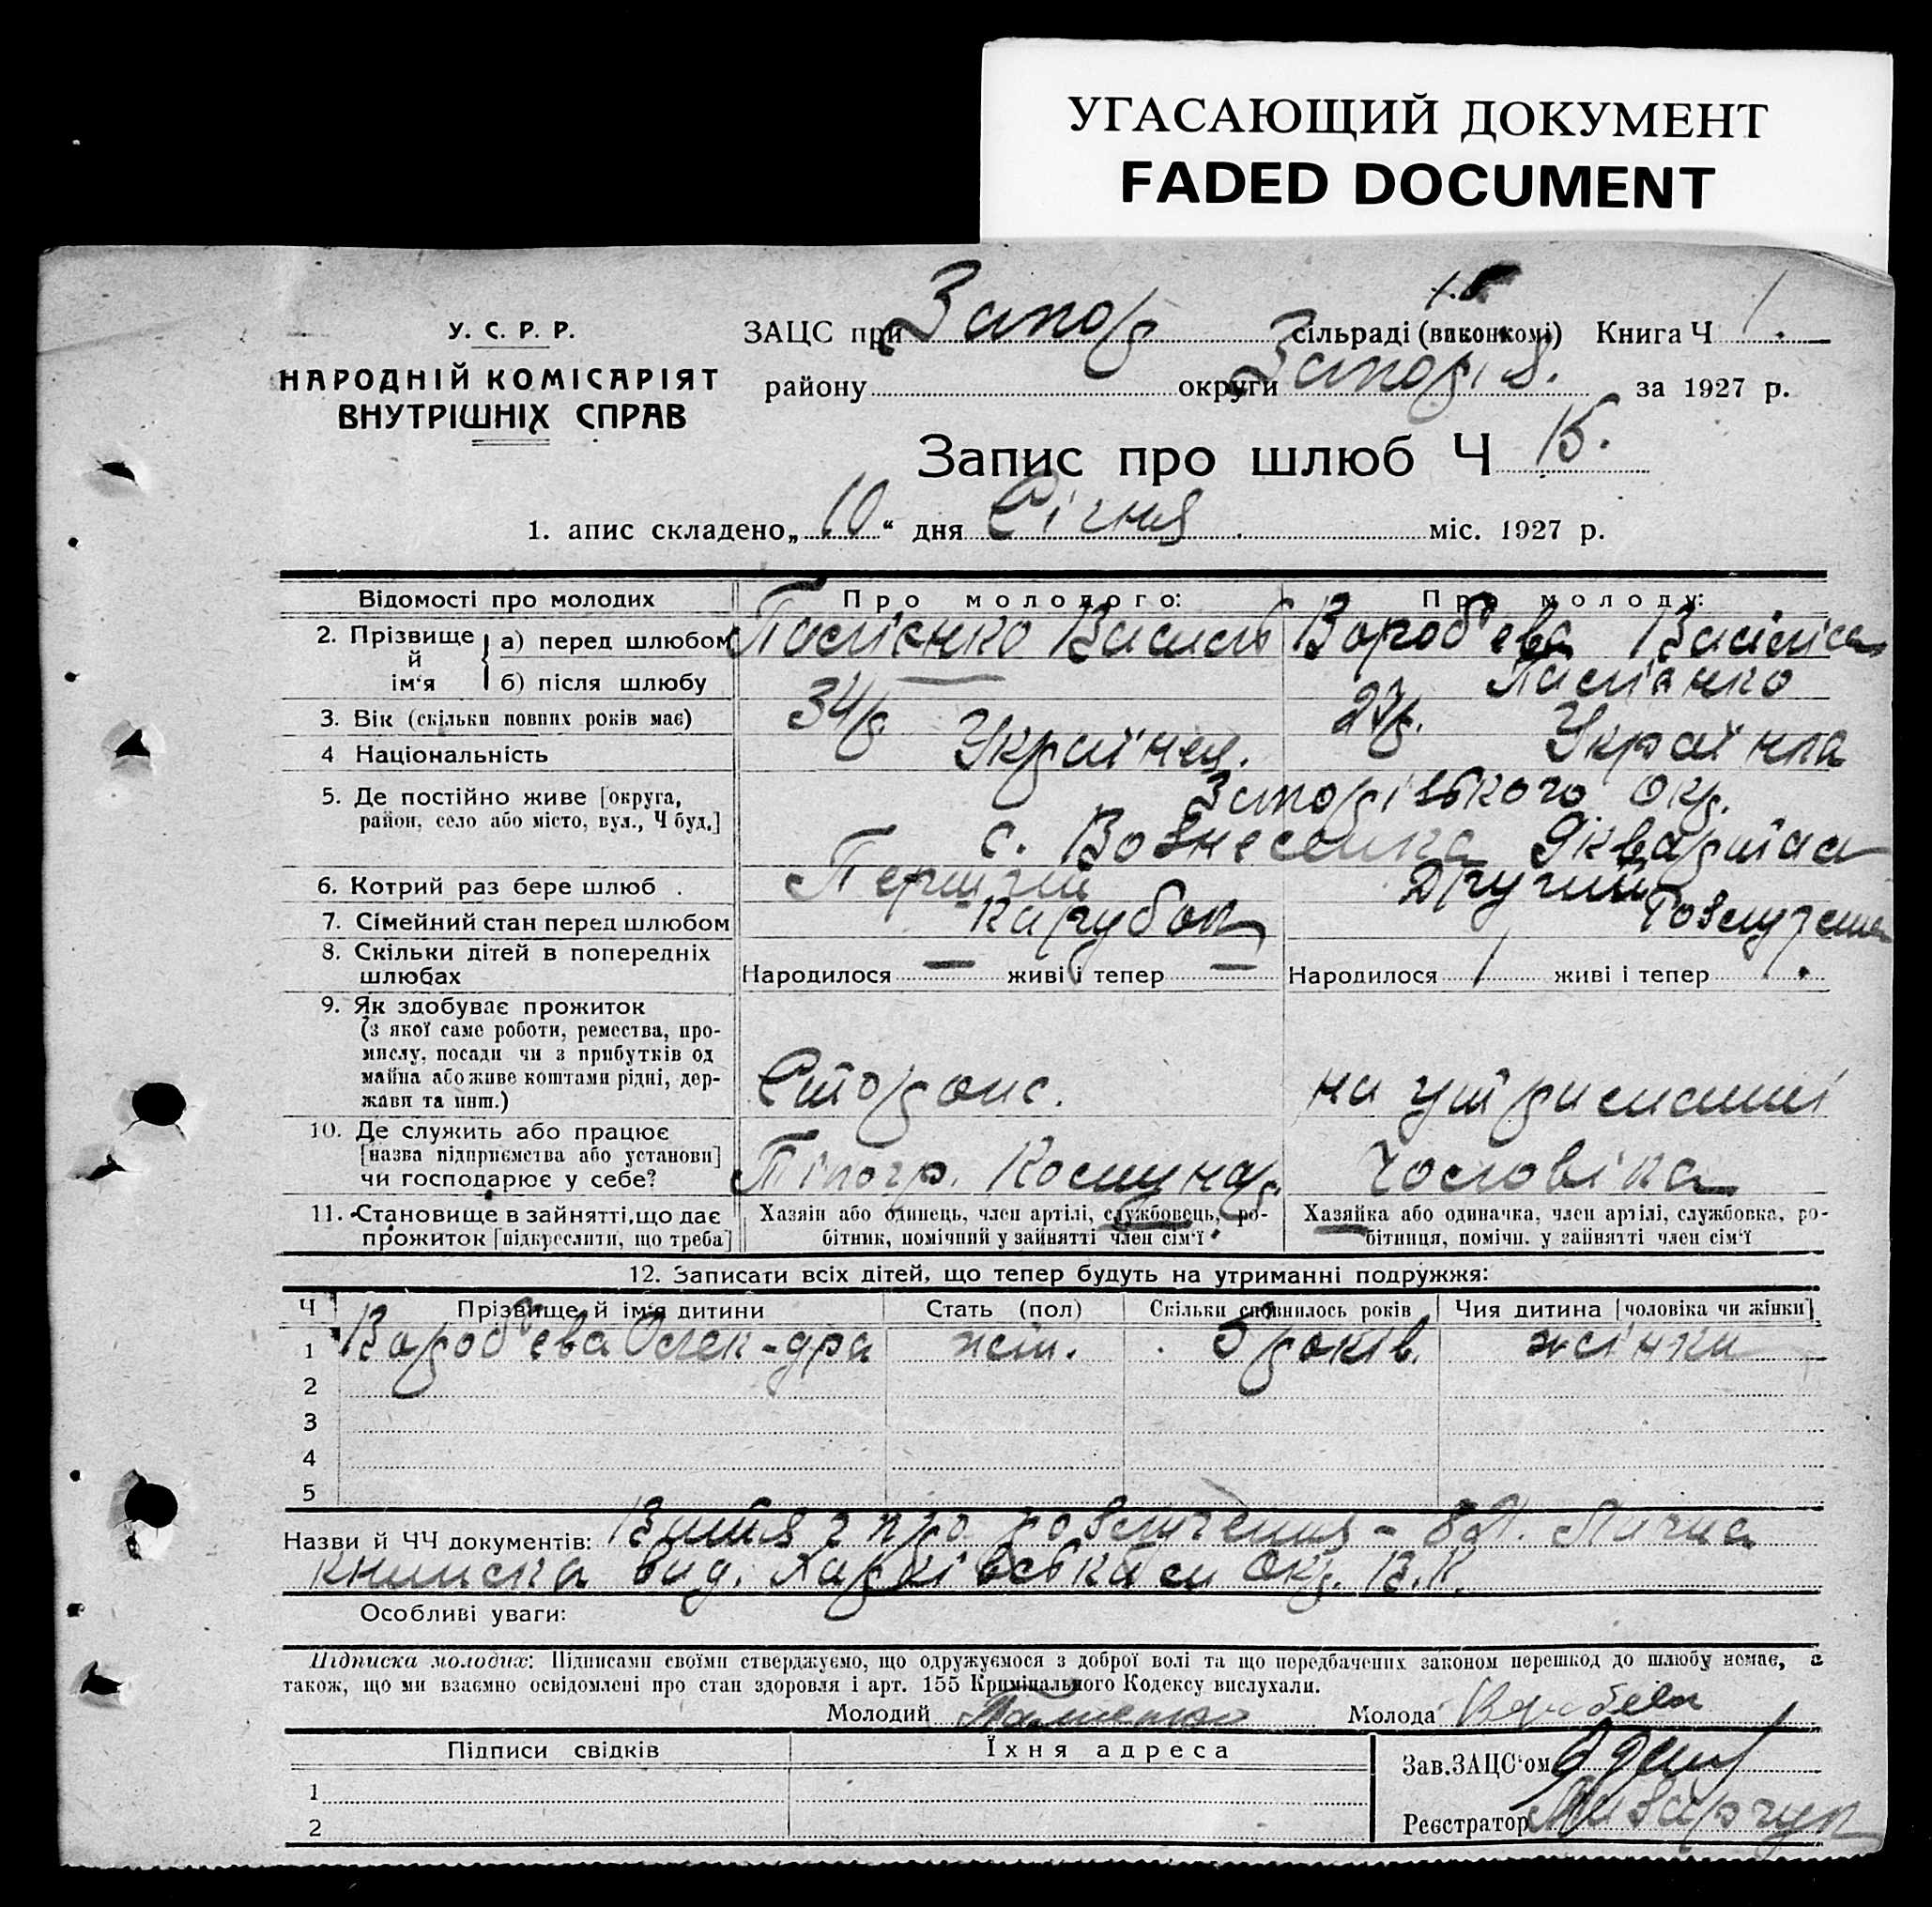 УГАСАЮЩИЙ ДОКУМЕНТ
FADED DOCUMENT
У. С. Р. Р.
НАРОДНІЙ КОМІСАРІЯТ
ВНУТРІШНІХ СПРАВ
ЗАЦС при Запор сільраді (виконкомі) Книга Ч 1.
району округи Запоріз. за 1927 р.
Запис про шлюб Ч 15.
1. апис складено „10“ дня Січня міс. 1927 р.
Відомості про молодих Про молодого: Про молоду:
2. Прізвище й ім‘я а) перед шлюбом Василь Вороб'ева
б) після шлюбу
3. Вік (скільки повних років має) 34 р. 27 р.
4 Національність Українец. Українка
5. Де постійно живе [округа, Запорізького Окр.
район, село або місто, вул., Ч буд.] с. Вознесенка
6. Котрий раз бере шлюб . Перший Другий
7. Сімейний стан перед шлюбом Парубок Розлучена
8. Скільки дітей в попередніх
шлюбах Народилося — живі і тепер — Народилося 1 живі і тепер 1.
9. Як здобуває прожиток
(з якої саме роботи, ремества, про-
мислу, посади чи з прибутків од
майна або живе коштами рідні, дер- Сторож. на утриманні
жави та инш.)
10. Де служить або працює
[назва підприємства або установи] Типогр. Комунар. Чоловіка
чи господарює у себе?
11. Становище в зайнятті, що дає Хазяін або одинець, член артілі, службовець, ро- Хазяйка або одиначка, член артілі, службовка, ро-
прожиток [підкреслити, що треба] бітник, помічний у зайнятті член сім‘ї бітниця, помічн. у зайнятті член сім‘ї
12. Записати всіх дітей, що тепер будуть на утриманні подружжя:
Ч Прізвище й ім‘я дитини Стать (пол) Скільки сповнилось років Чия дитина [чоловіка чи жінки]
1 Вороб'ева Олек-дра жін. 5 років. жінки
2
3
4
5
Назви й ЧЧ документів: Витяг про розлучення -
книжка вид. Харківським Окр. В.К.
Особливі уваги:
Підписка молодих: Підписами своїми стверджуємо, що одружуємося з доброї волі та що передбачених законом перешкод до шлюбу немає, а
також, що ми взаємно освідомлені про стан здоровля і арт. 155 Кримінального Кодексу вислухали.
Молодий Молода
Підписи свідків Їхня адреса
Зав.ЗАЦС‘ом
1
Реєстратор
2